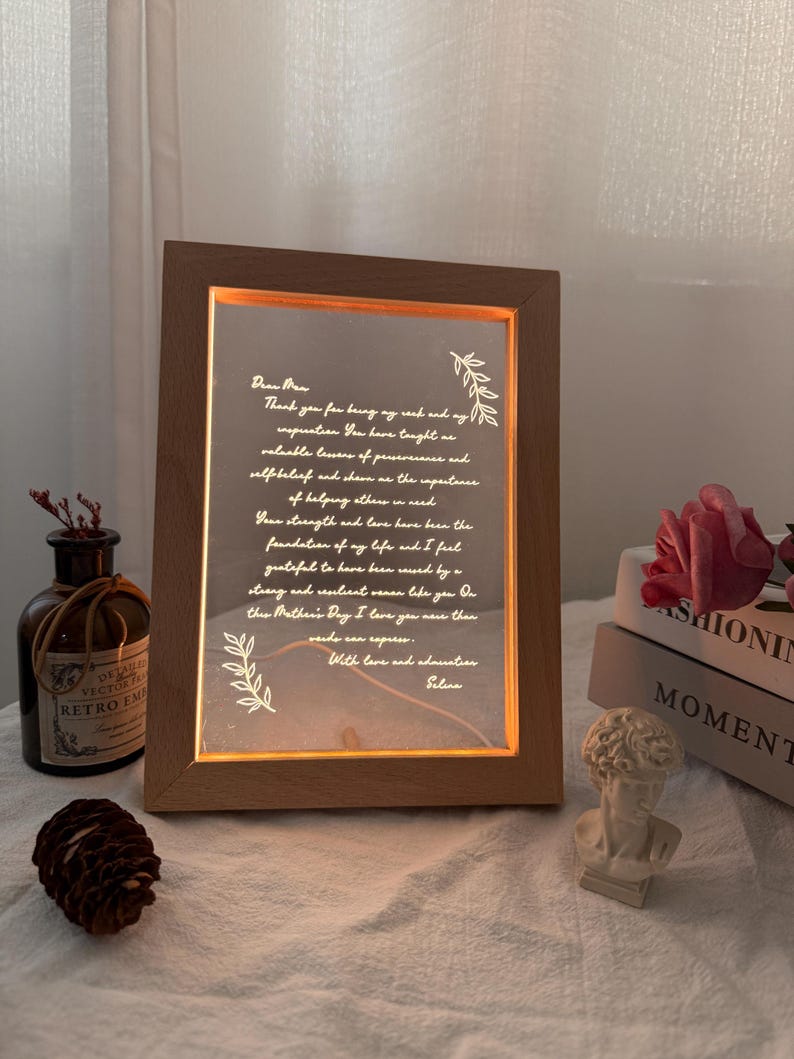 Dear Mom
Thank you for being my rock and my
inspiration You have taught me
valuable lessons of perseverance and
self-belief and shown me the importance
of helping others in need
Your strength and love have been the
foundation of my life and I feel
grateful to have been raised by a
strong and resilient woman like you On
this Mother's Day I love you more than
words can express.
With love and admiration
Selina
DETAILED
VECTOR FRAM
RETRO EMB
FASHIONIN
MOMENT